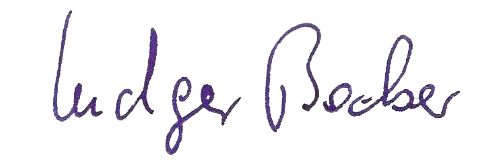 Ludger Becker